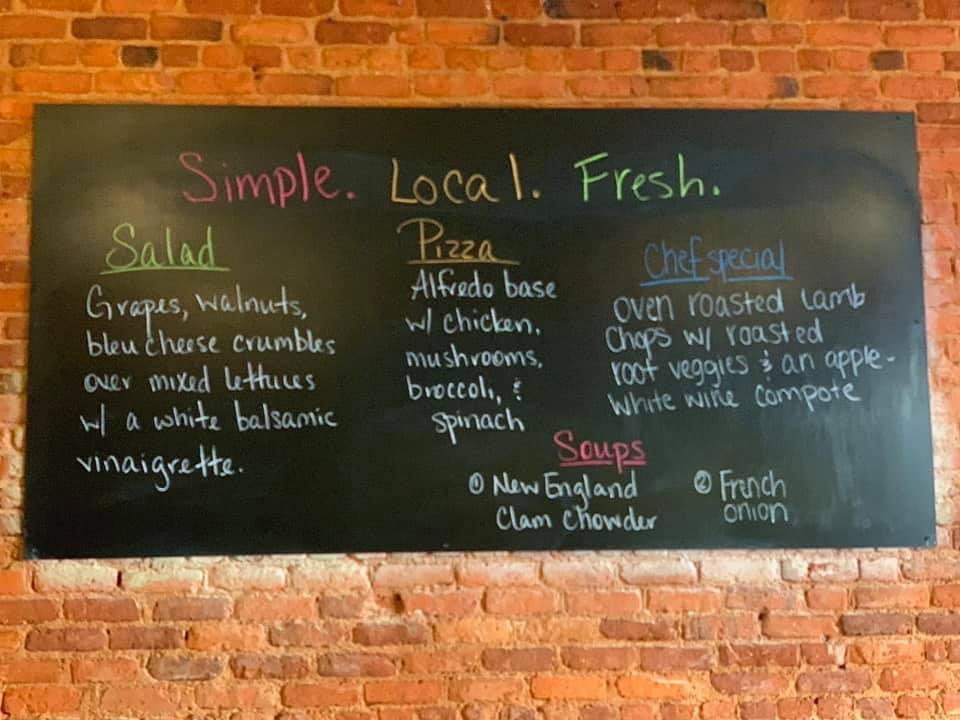 Simple. Local. Fresh.
Salad
Grapes, walnuts,
bleu cheese crumbles
over mixed lettuces
w/ a white balsamic
vinaigrette.
Pizza
Alfredo base
w/ chicken,
mushrooms,
broccoli, &
spinach
Chef special
oven roasted Lamb
Chops w/ roasted
root veggies & an apple-
white wine compote
Soups
① New England
Clam Chowder
② French
onion